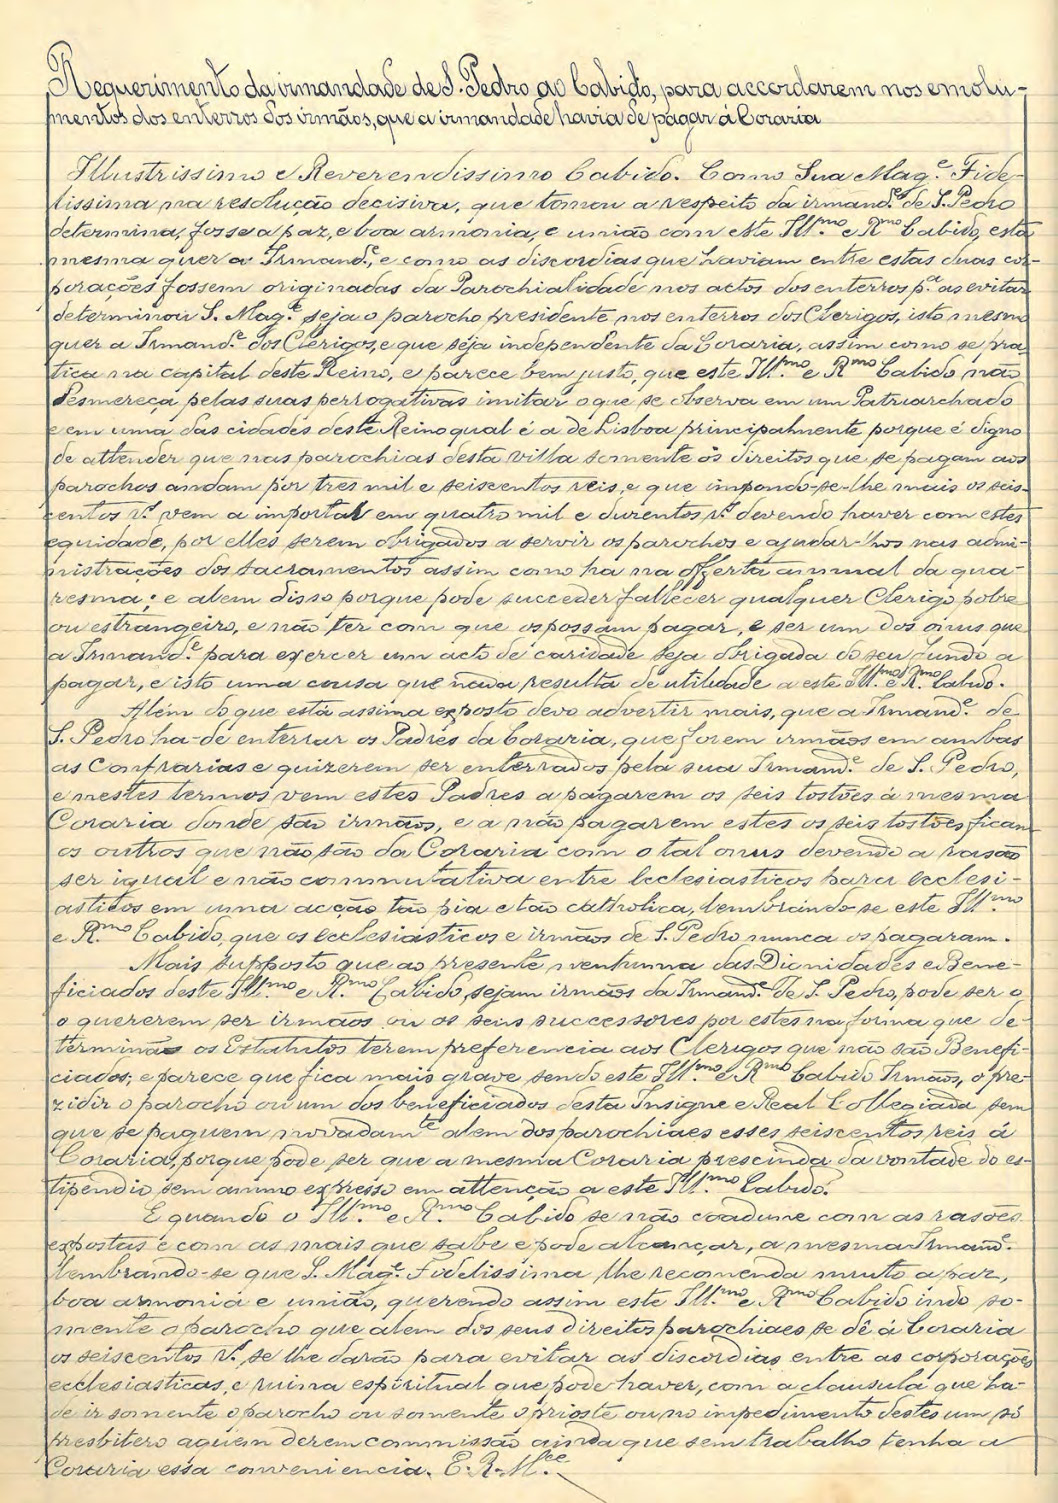 Requerimento da irmandade de S. Pedro ao Cabido, para accordarem nos emolu-
mentos dos enterros dos irmãos, que a irmandade havia de pagar á Coraria
Illustrissimo e Reverendissimo Cabido. Como Sua Mag.e Fide-
lissima na resolução decisiva, que tomou a respeito da irmand.e de S. Pedro
determina, fosse a paz, e boa armonia, e união com este Ill.mo e R.mo Cabido, esta
mesma quer a Irmand.e, e como as discordias que haviam entre estas duas cor-
porações fossem originadas da Parochialidade nos actos dos enterros p.a as evitar
determinou S. Mag.e seja o parocho presidente nos enterros dos Clerigos, isto mesmo
quer a Irmand.e dos Clerigos, e que seja independente da Coraria, assim como se pra-
tica na capital deste Reino, e parece bem justo, que este Ill.mo e R.mo Cabido não
desmereça pelas suas perrogativas imitar o que se observa em um Patriarchado
e em uma das cidades deste Reino qual é a de Lisboa principalmente, porque é digno
de attender que nas parochias desta villa somente os direitos que se pagam aos
parochos andam por tres mil e seiscentos reis, e que impondo-se-lhe mais os seis-
centos r.s vem a importar em quatro mil e duzentos r.s devendo haver com estes
equidade, por elles serem obrigados a servir os parochos e ajudar-lhos nas admi-
nistrações dos sacramentos assim como ha na offerta annual da qua-
resma; e alem disso porque pode succeder fallecer qualquer Clerigo pobre
ou estrangeiro, e não ter com que os possam pagar, e ser um dos onus que
a Irmand.e para exercer um acto de caridade seja obrigada do seu fundo a
pagar, e isto uma cousa que nada resulta de utilidade a este Ill.mo e R.mo Cabido.
Além do que está assima exposto devo advertir mais, que a Irmand.e de
S. Pedro ha-de enterrar os Padres da Coraria, que forem irmãos em ambas
as Confrarias e quizerem ser enterrados pela sua Irmand.e de S. Pedro,
e nestes termos vem estes Padres a pagarem os seis tostões á mesma
Coraria donde são irmãos, e a não pagarem estes os seis tostões ficam
os outros que não são da Coraria com o tal onus devendo a rasão
ser igual e não commutativa entre ecclesiasticos para ecclesi-
asticos em uma acção tão pia e tão catholica, lembrando-se este Ill.mo
e R.mo Cabido, que os ecclesiasticos e irmãos de S. Pedro nunca os pagaram.
Mais supposto que ao presente nenhuma das Dignidades e Bene-
ficiados deste Ill.mo e R.mo Cabido, sejam irmãos da Irmand.e de S. Pedro, pode ser o
o quererem ser irmãos ou os seus successores por estes na forma que de-
terminão os Estatutos terem preferencia aos Clerigos que não são Benefi-
ciados; e parece que fica mais grave sendo este Ill.mo e R.mo Cabido Irmãos, o pre-
zidir o parocho ou um dos beneficiados desta Insigne e Real Collegiada sem
que se paguem novadam.e alem dos parochiaes esses seiscentos reis á
Coraria, porque pode ser que a mesma Coraria prescinda da vontade do es-
tipendio sem animo expresso em attenção a este Ill.mo Cabido.
E quando o Ill.mo e R.mo Cabido se não coadune com as rasões
expostas e com as mais que sabe e pode alcançar, a mesma Irmand.e
lembrando-se que S. Mag.e Fidelissima lhe recomenda muuto a paz,
boa armonia e união, querendo assim este Ill.mo e R.mo Cabido indo so-
mente o parocho que alem dos seus direitos parochiaes se dê á Coraria
os seiscentos r.s se lhe darão para evitar as discordias entre as corporações
ecclesiasticas, e ruina espiritual que pode haver, com a clausula que ha-
de ir somente o parocho ou somente o prioste ou no impedimento destes um só
presbitero aquem derem commissão ainda que sem trabalho tenha a
Coraria essa conveniencia. E. R. M.ce